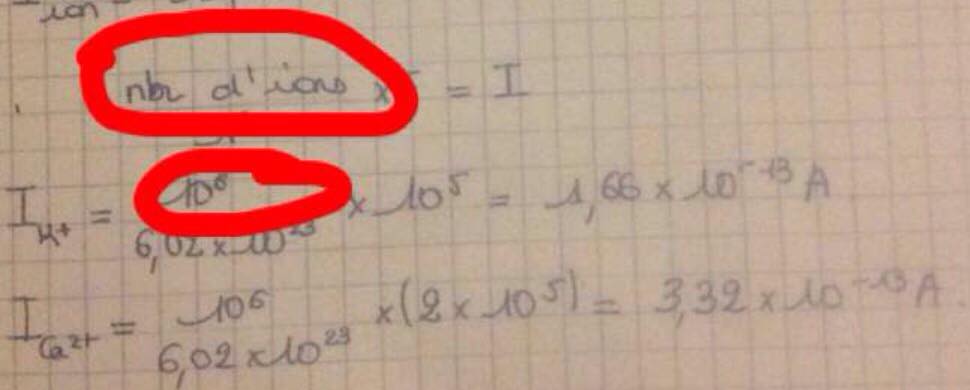 ion
nbr d'ions x = I
I_H+ = 10⁶ / 6,02 x 10²³ x 10⁵ = 1,66 x 10⁻¹³ A
I_Ca²⁺ = 10⁶ / 6,02 x 10²³ x (2 x 10⁵) = 3,32 x 10⁻¹³ A.